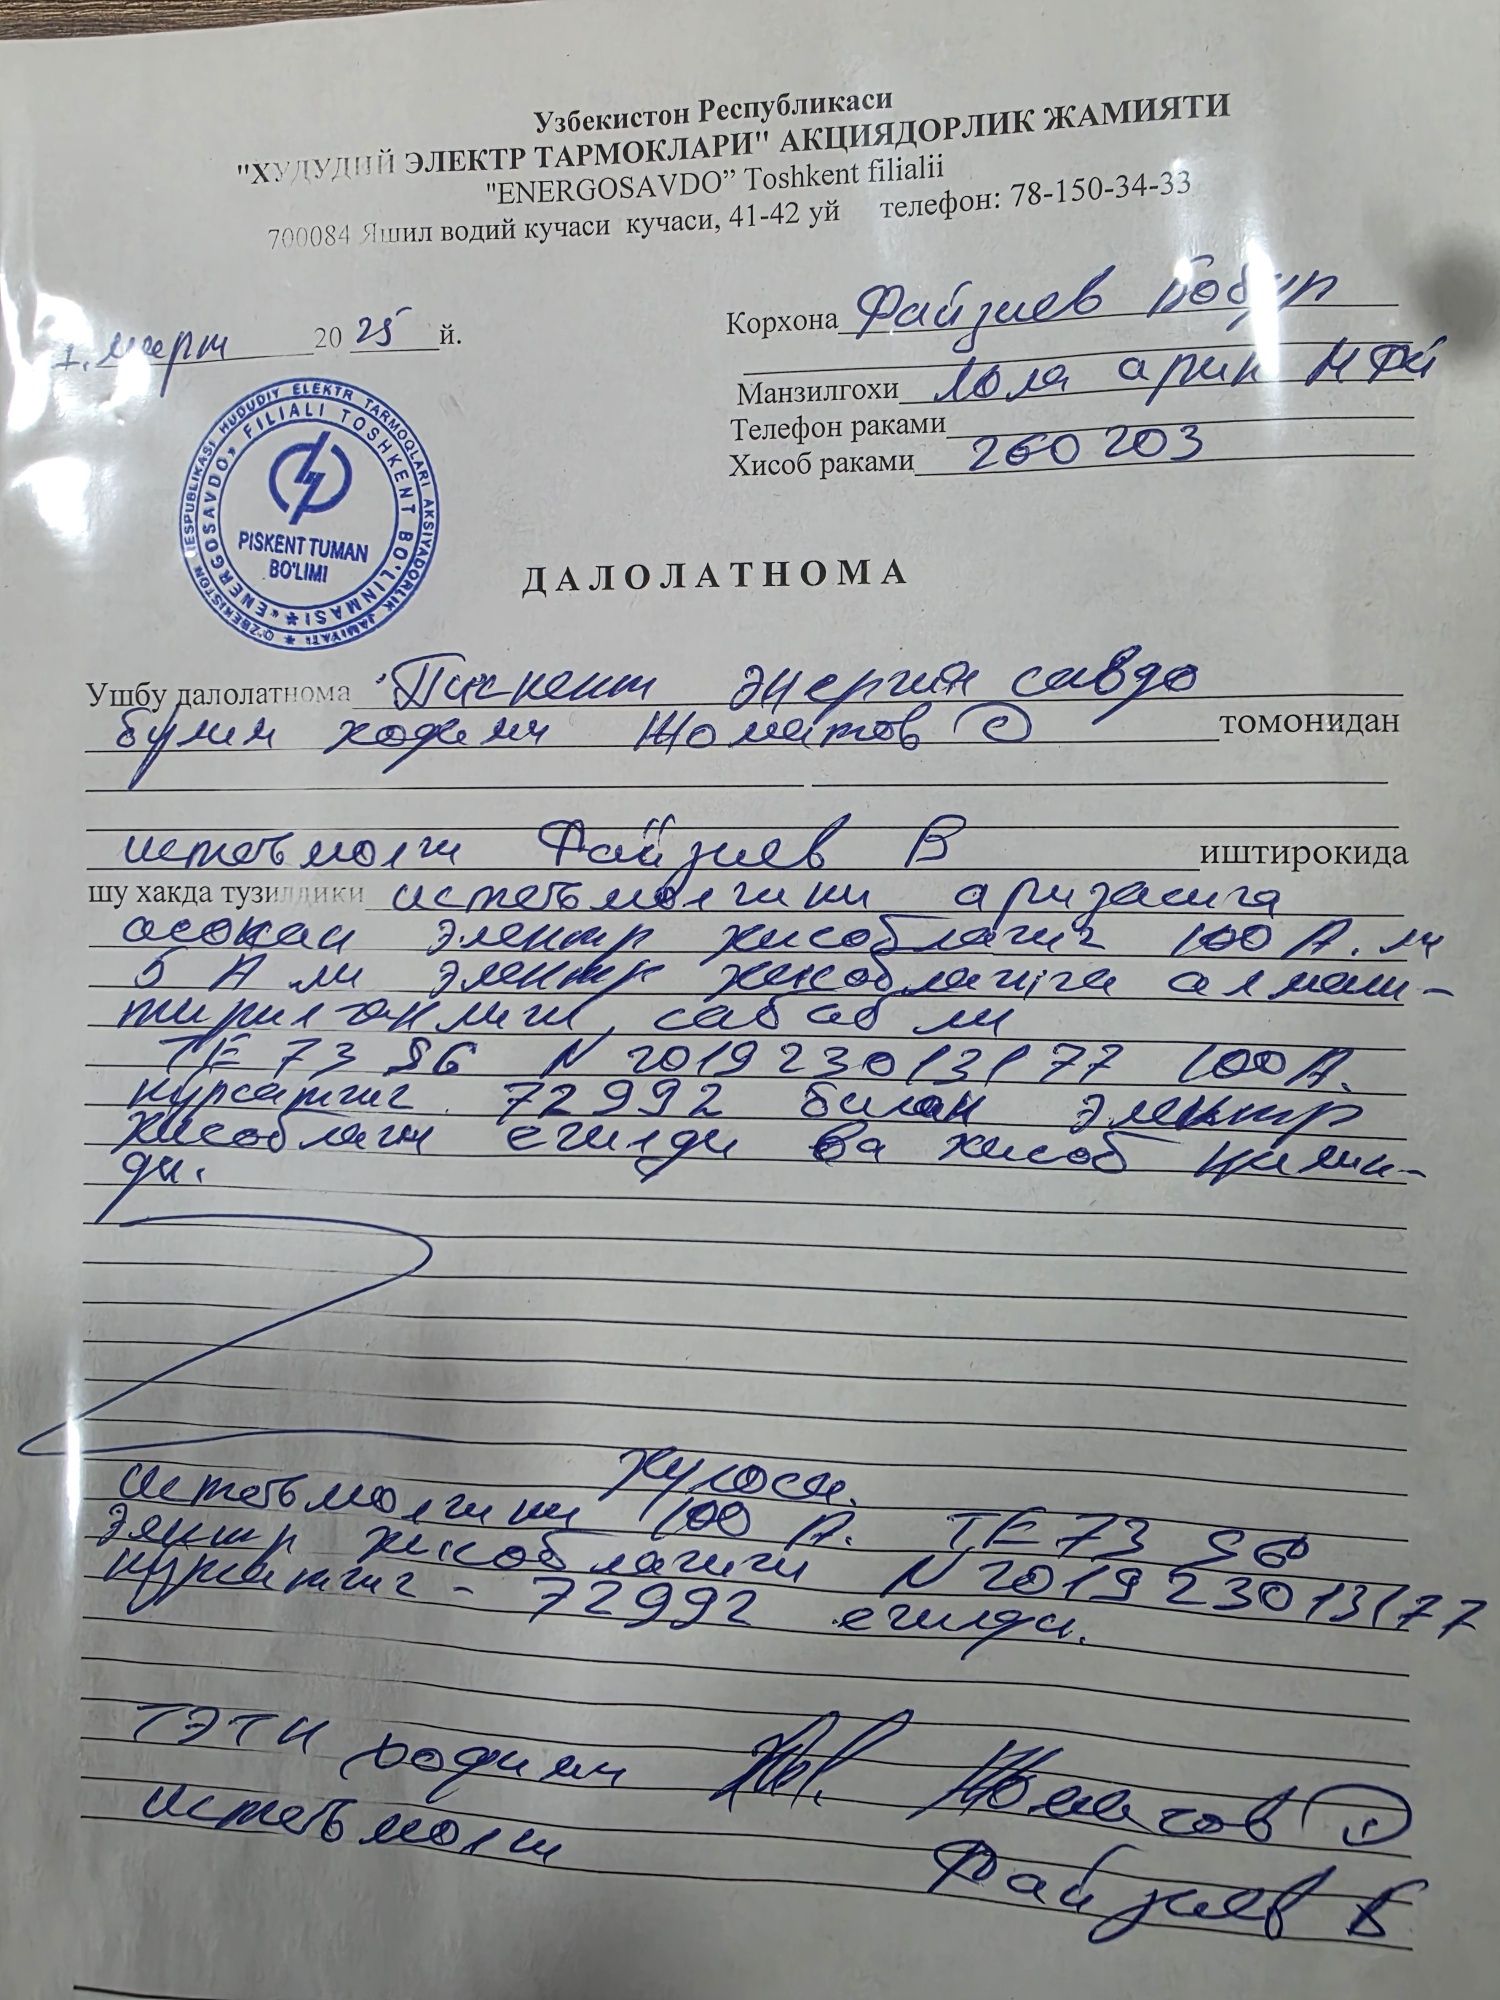 Узбекистон Республикаси
"ХУДУДИЙ ЭЛЕКТР ТАРМОКЛАРИ" АКЦИЯДОРЛИК ЖАМИЯТИ
"ENERGOSAVDO” Toshkent filialii
700084 Яшил водий кучаси кучаси, 41-42 уй телефон: 78-150-34-33
1. март 2025 й.
Корхона Файзиев Бобур
Манзилгохи Лола арик МФЙ
Телефон раками
Хисоб раками 260203
O'ZBEKISTON RESPUBLIKASI HUDUDIY ELEKTR TARMOQLARI AKSIYADORLIK JAMIYATI
«ENERGOSAVDO» FILIALI TOSHKENT BO'LINMASI
PISKENT TUMAN
BO'LIMI
ДАЛОЛАТНОМА
Ушбу далолатнома Пискент энергия савдо
булим ходими Шоматов томонидан
истеъмолчи Файзиев Б иштирокида
шу хакда тузилдики истеъмолчини аризасига
асосан электр хисоблагич 100 А. ли
5 А ли электр хисоблагичга алмаш-
тирилганлиги сабабли
ТЕ 73 SG N 201923013177 100 А.
курсатгич 72992 билан электр
хисоблагич ечилди ва хисоб килин-
ди.
Хулоса.
истеъмолчини 100 А. ТЕ 73 SG
электр хисоблагичи N 201923013177
курсатгич - 72992 ечилди.
ТЭТК ходими Шоматов
истеъмолчи Файзиев Б